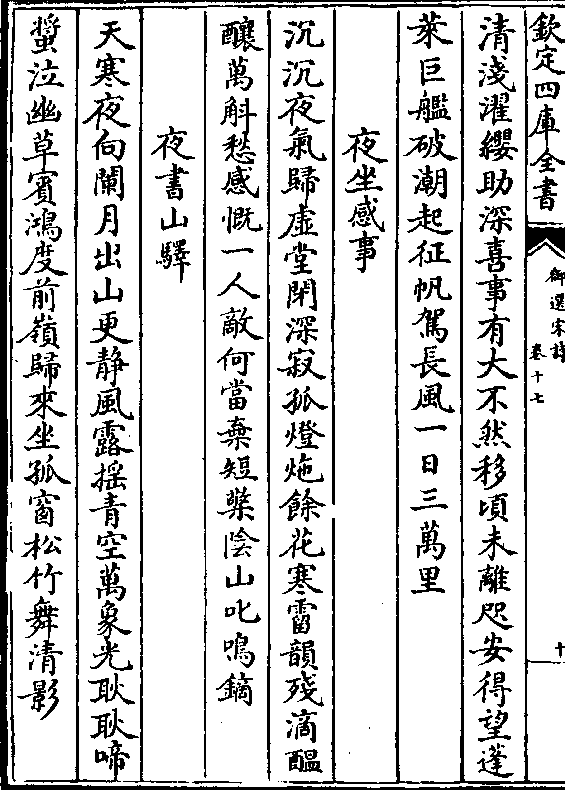 欽定四庫全書
御選宋詩
卷十七
十
清淺濯纓助深喜事有大不然移頃未離咫安得望蓬
萊巨艦破潮起征帆駕長風一日三萬里
夜坐感事
沉沉夜氣歸虛堂閉深寂孤燈灺餘花寒霤韻殘滴醖
釀萬斛愁感慨一人敵何當棄短檠陰山叱鳴鏑
夜書山驛
天寒夜向闌月出山更靜風露搖青空萬象光耿耿啼
螿泣幽草賓鴻度前嶺歸來坐孤窗松竹舞清影